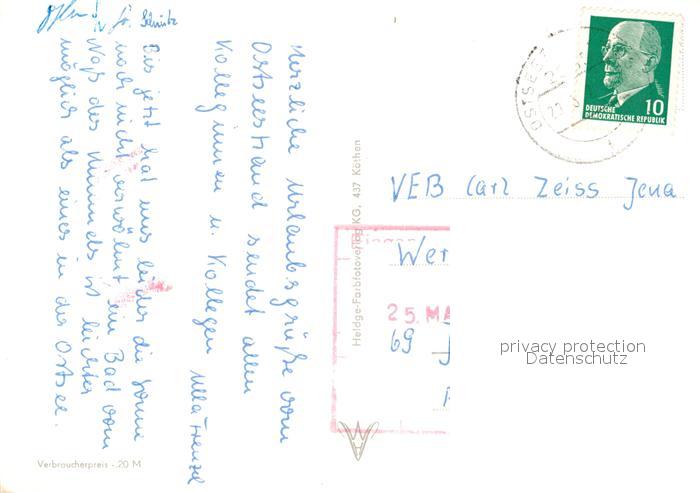 Herzliche Urlaubsgrüße vom
Ostseestrand sendet allen
Kolleginnen u. Kollegen Ulla Frenzel
Bis jetzt hat uns leider die Sonne
noch nicht verwöhnt ein Bad vom
Naß des Himmels ist leichter
möglich als eines in der Ostsee.
Schmitz
Verbraucherpreis -.20 M
Heldge-Farbfotoverlag KG, 437 Köthen
OSTSEEB
DEUTSCHE
DEMOKRATISCHE REPUBLIK
10
VEB Carl Zeiss Jena
Wer
25. MA
69 J
privacy protection
Datenschutz